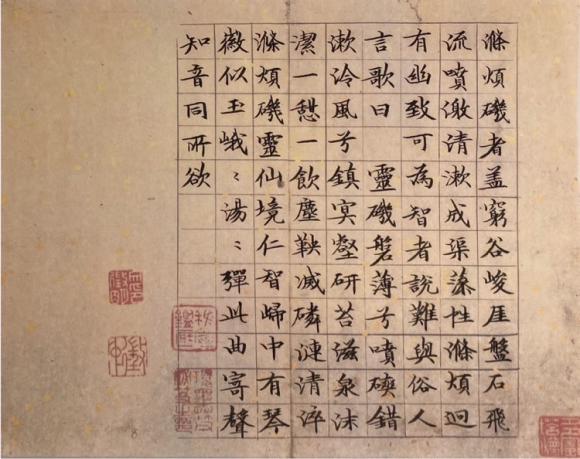 滌煩磯者盖窮谷峻厓盤石飛
流噴激清漱成渠澡性滌煩迥
有幽致可為智者說難與俗人
言歌曰 靈磯磐薄兮噴磢錯
漱泠風兮鎮冥壑研苔滋泉沫
潔一憩一飲塵鞅滅磷漣清淬
滌煩磯靈仙境仁智歸中有琴
徽似玉峨〻湯〻彈此曲寄聲
知音同所欲